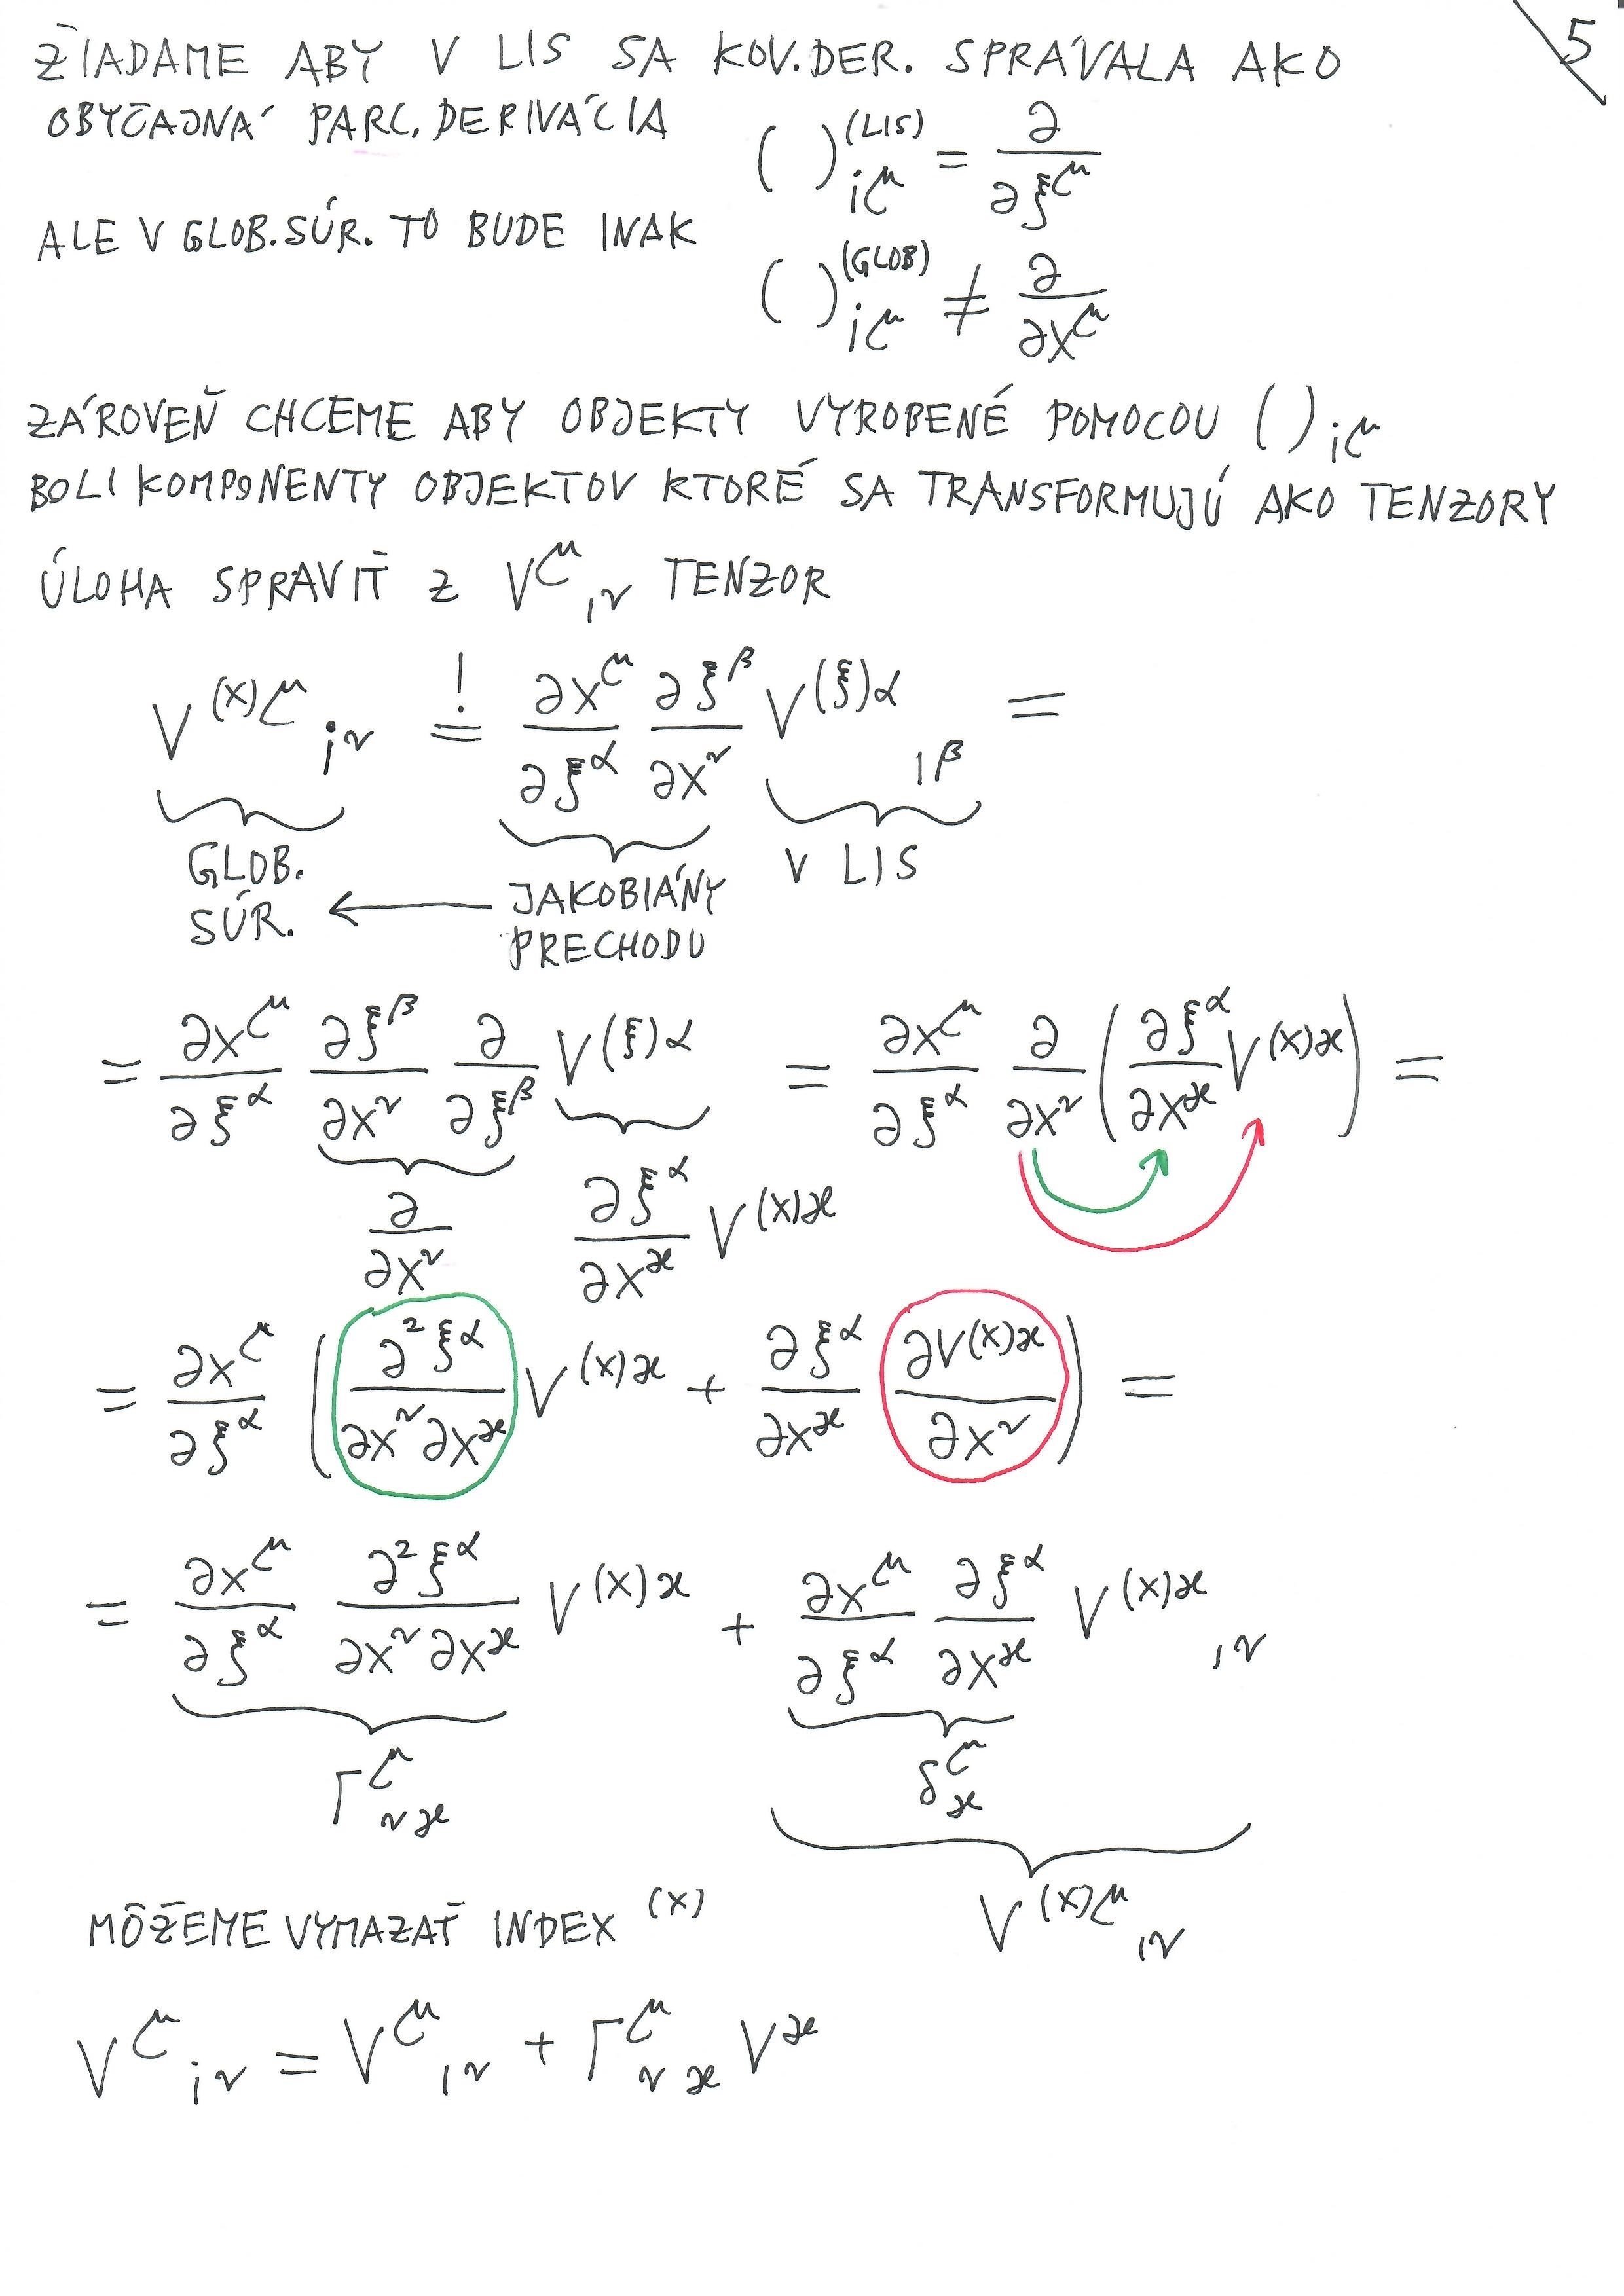 5
ŽIADAME ABY V LIS SA KOV.DER. SPRÁVALA AKO
OBYČAJNÁ PARC. DERIVÁCIA
( )^{(LIS)}_{;μ} = ∂/∂ξ^μ
ALE V GLOB.SÚR. TO BUDE INAK
( )^{(GLOB)}_{;μ} ≠ ∂/∂x^μ
ZÁROVEŇ CHCEME ABY OBJEKTY VYROBENÉ POMOCOU ( )_{;μ}
BOLI KOMPONENTY OBJEKTOV KTORÉ SA TRANSFORMUJÚ AKO TENZORY
ÚLOHA SPRAVIŤ Z V^μ_{,ν} TENZOR
V^{(x)μ}_{;ν} =! ∂x^μ/∂ξ^α ∂ξ^β/∂x^ν V^{(ξ)α}_{,β} =
GLOB. SÚR. ← JAKOBIÁNY PRECHODU
V LIS
= ∂x^μ/∂ξ^α ∂ξ^β/∂x^ν ∂/∂ξ^β V^{(ξ)α} = ∂x^μ/∂ξ^α ∂/∂x^ν (∂ξ^α/∂x^ϰ V^{(x)ϰ}) =
∂/∂x^ν ∂ξ^α/∂x^ϰ V^{(x)ϰ}
= ∂x^μ/∂ξ^α (∂²ξ^α/∂x^ν∂x^ϰ V^{(x)ϰ} + ∂ξ^α/∂x^ϰ ∂V^{(x)ϰ}/∂x^ν) =
= ∂x^μ/∂ξ^α ∂²ξ^α/∂x^ν∂x^ϰ V^{(x)ϰ} + ∂x^μ/∂ξ^α ∂ξ^α/∂x^ϰ V^{(x)ϰ}_{,ν}
Γ^μ_{νϰ} δ^μ_ϰ
V^{(x)μ}_{,ν}
MÔŽEME VYMAZAŤ INDEX ^{(x)}
V^μ_{;ν} = V^μ_{,ν} + Γ^μ_{νϰ} V^ϰ